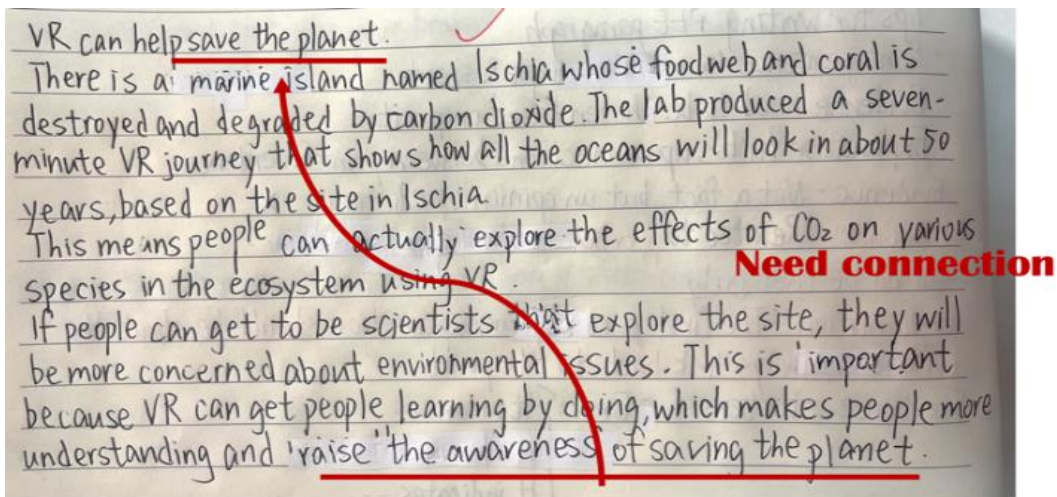 VR can help save the planet.
There is a marine island named Ischia whose food web and coral is
destroyed and degraded by carbon dioxide. The lab produced a seven-
minute VR journey that shows how all the oceans will look in about 50
years, based on the site in Ischia.
This means people can actually explore the effects of CO₂ on various
Need connection
species in the ecosystem using VR.
If people can get to be scientists that explore the site, they will
be more concerned about environmental issues. This is important
because VR can get people learning by doing, which makes people more
understanding and raise the awareness of saving the planet.